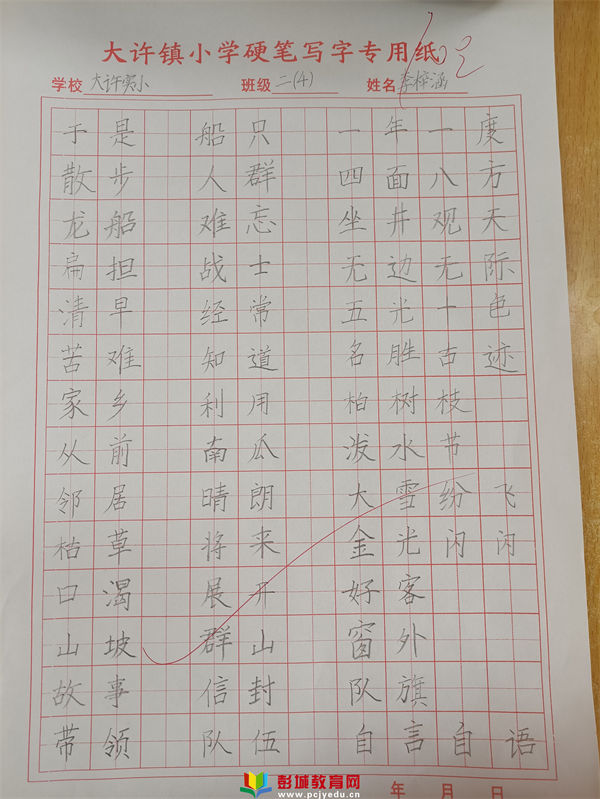 大许镇小学硬笔写字专用纸
学校 大许实小 班级 二(4) 姓名 李梓涵
于是 船只 一年一度
散步 人群 四面八方
龙船 难忘 坐井观天
扁担 战士 无边无际
清早 经常 五光十色
苦难 知道 名胜古迹
家乡 利用 柏树枝
从前 南瓜 泼水节
邻居 晴朗 大雪纷飞
枯草 将来 金光闪闪
口渴 展开 好客
山坡 群山 窗外
故事 信封 队旗
带领 队伍 自言自语
年 月 日
彭城教育网
www.pcjyedu.cn